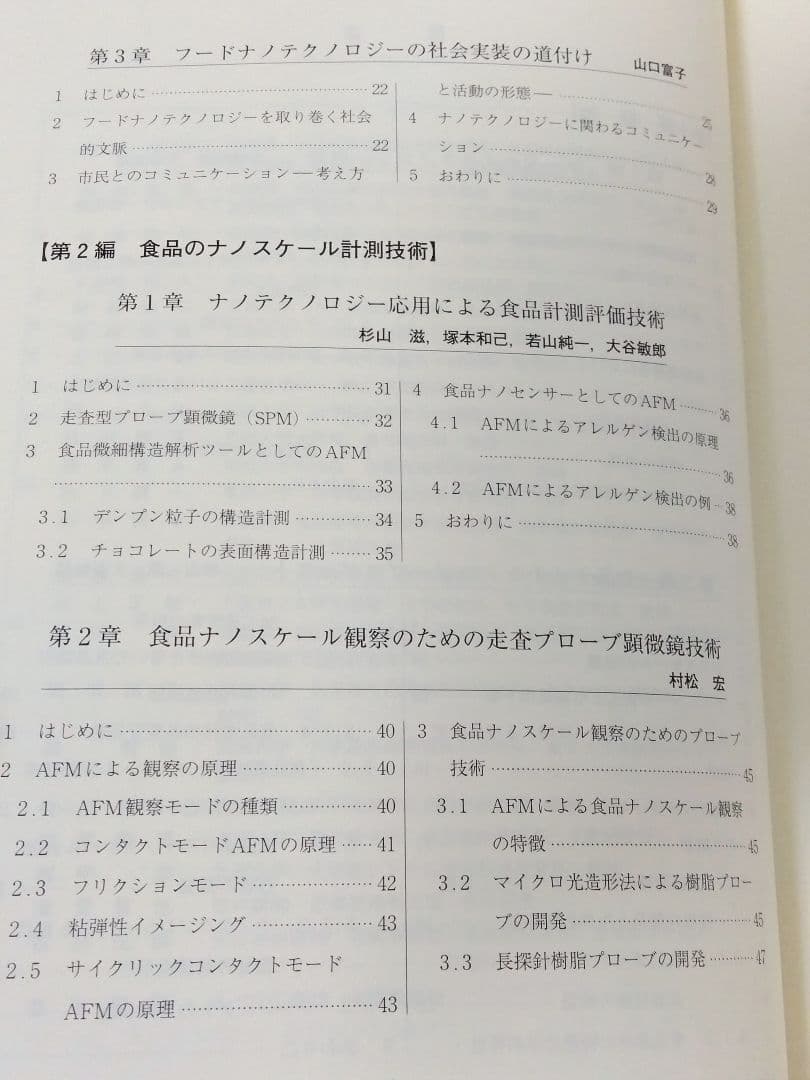 第3章　フードナノテクノロジーの社会実装の道付け　山口富子
1　はじめに……………………………22
2　フードナノテクノロジーを取り巻く社会
的文脈……………………………22
3　市民とのコミュニケーション―考え方
と活動の形態―……………………25
4　ナノテクノロジーに関わるコミュニケー
ション……………………………28
5　おわりに……………………………29
【第2編　食品のナノスケール計測技術】
第1章　ナノテクノロジー応用による食品計測評価技術
杉山　滋，塚本和己，若山純一，大谷敏郎
1　はじめに……………………………31
2　走査型プローブ顕微鏡（SPM）…………32
3　食品微細構造解析ツールとしてのAFM
……………………………33
3.1　デンプン粒子の構造計測……………34
3.2　チョコレートの表面構造計測………35
4　食品ナノセンサーとしてのAFM………36
4.1　AFMによるアレルゲン検出の原理
……………………………36
4.2　AFMによるアレルゲン検出の例…38
5　おわりに……………………………38
第2章　食品ナノスケール観察のための走査プローブ顕微鏡技術
村松　宏
1　はじめに……………………………40
2　AFMによる観察の原理………………40
2.1　AFM観察モードの種類……………40
2.2　コンタクトモードAFMの原理……41
2.3　フリクションモード………………42
2.4　粘弾性イメージング………………43
2.5　サイクリックコンタクトモード
AFMの原理……………………………43
3　食品ナノスケール観察のためのプローブ
技術……………………………45
3.1　AFMによる食品ナノスケール観察
の特徴……………………………45
3.2　マイクロ光造形法による樹脂プロー
ブの開発……………………………45
3.3　長探針樹脂プローブの開発…………47